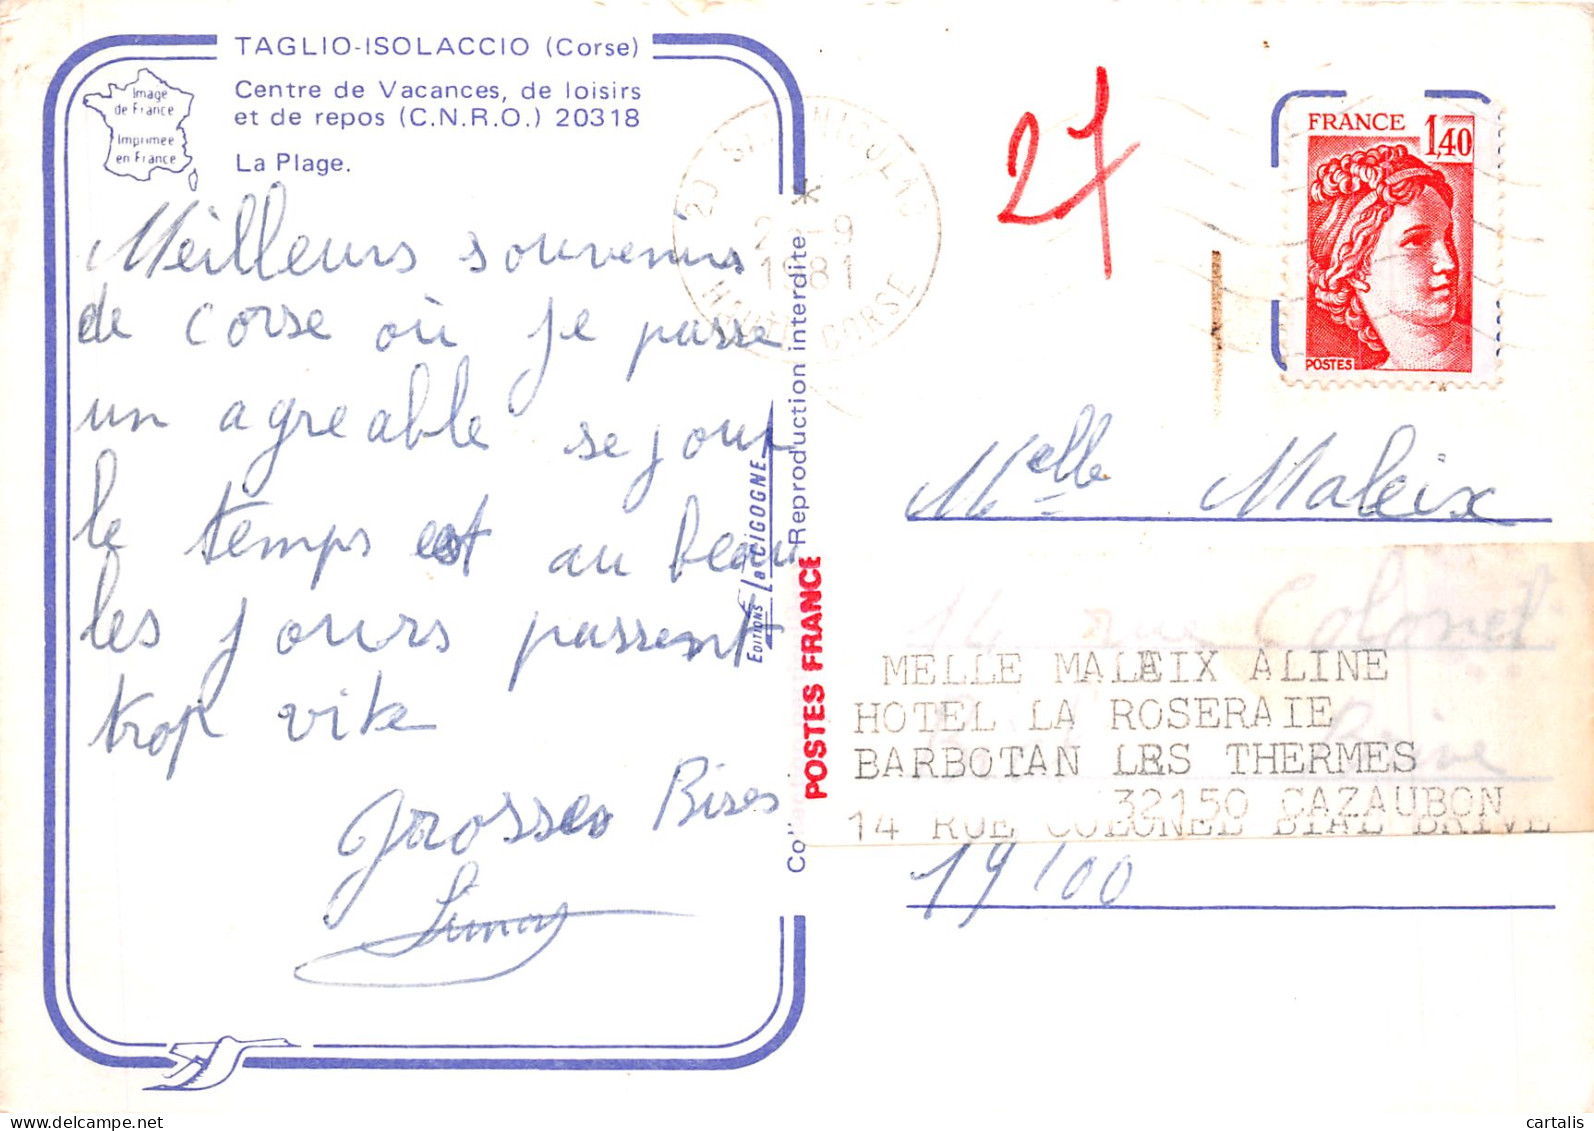 TAGLIO-ISOLACCIO (Corse)
Centre de Vacances, de loisirs
et de repos (C.N.R.O.) 20318
La Plage.
Image
de France
Imprimée
en France
Meilleurs souvenirs
de corse où je passe
un agreable sejour
le temps est au beau
les jours passent
trop vite
Grosses Bises
EDITIONS La CIGOGNE
Reproduction interdite
POSTES FRANCE
1981
CORSE
27
FRANCE
1,40
POSTES
Melle Maleix
14 rue Colonel
Brive
MELLE MALEIX ALINE
HOTEL LA ROSERAIE
BARBOTAN LES THERMES
32150 CAZAUBON
14 RUE COLONEL BIAL BRIVE
19100
cartalis | delcampe.net